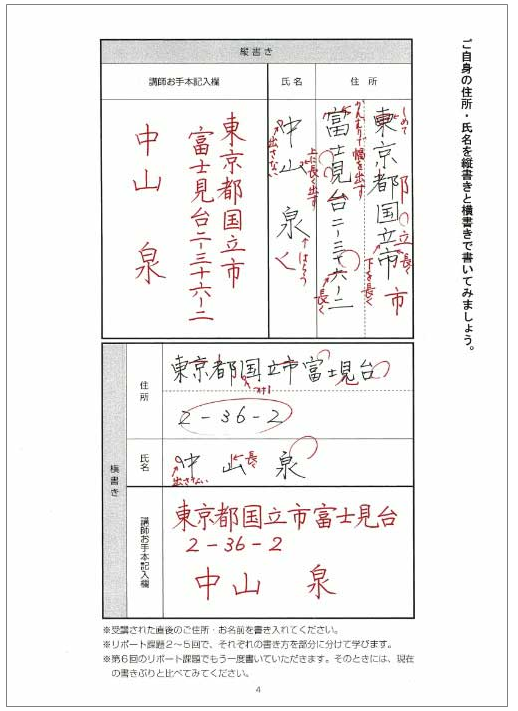 ご自身の住所・氏名を縦書きと横書きで書いてみましょう。
縦書き
住所
氏名
講師お手本記入欄
東京都国立市
富士見台二ー三十六ー二
中山 泉
しめて
立
長く
市
下を長く
かんむりで幅を出す
長く
上に長く出す
出さない
はらう
東京都国立市
富士見台二ー三十六ー二
中山 泉
横書き
住所
東京都国立市富士見台
2-36-2
氏名
中山 泉
出さない
長く
講師お手本記入欄
東京都国立市富士見台
2-36-2
中山 泉
※受講された直後のご住所・お名前を書き入れてください。
※リポート課題2〜5回で、それぞれの書き方を部分に分けて学びます。
※第6回のリポート課題でもう一度書いていただきます。そのときには、現在
の書きぶりと比べてみてください。
4